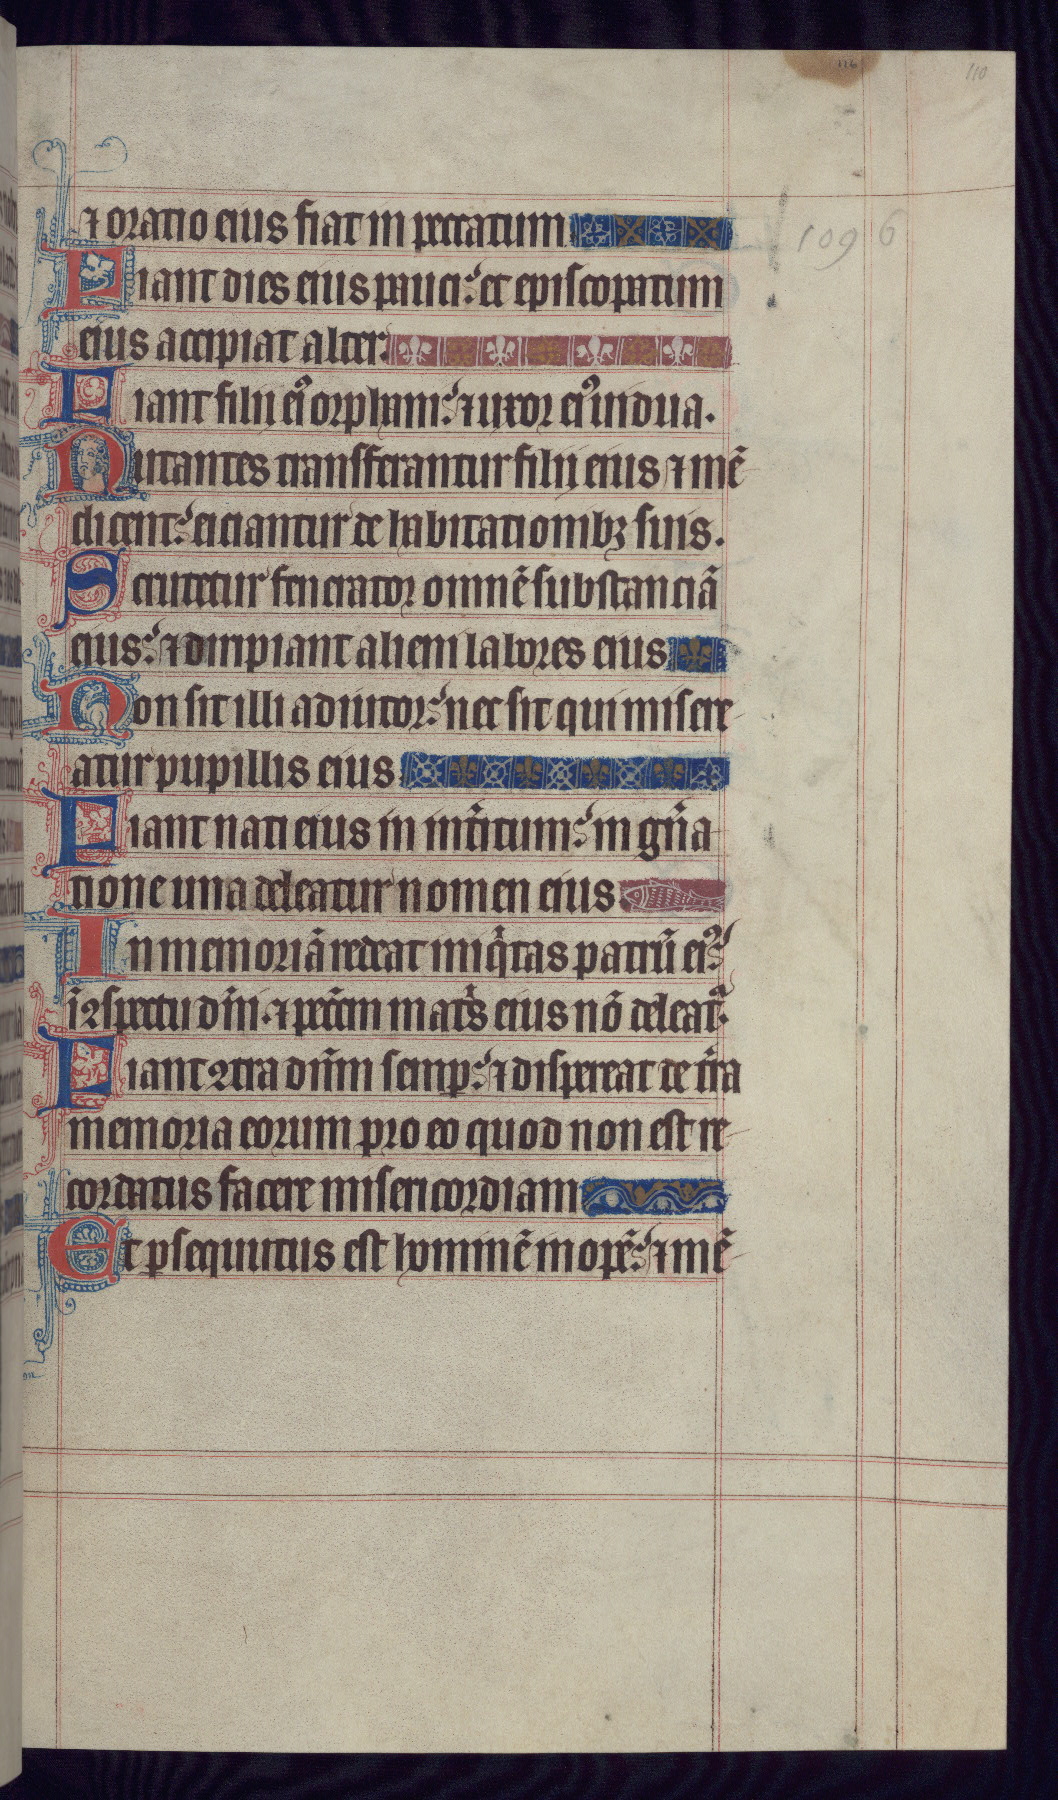 116
110
⁊ oratio eius fiat in peccatum
109 6
Fiant dies eius pauci: et episcopatum
eius accipiat alter.
Fiant filii ei᷒ orphani: ⁊ uxor ei᷒ uidua.
Nutantes transferantur filij eius ⁊ mē
dicent: eiciantur de habitationibꝫ suis.
Scrutetur fenerator omnē substanciā
eius: ⁊ diripiant alieni labores eius
Non sit illi adiutor: nec sit qui misere
atur pupillis eius
Fiant nati eius in int̄itum: in gn̄a
tione una deleatur nomen eius
In memoriā redeat iniq̄tas patrū ei᷒
ī ꝯspectu dn̄i. ⁊ pecc̄m mat̄s eius nō deleat᷑.
Fiant ꝯtra dn̄m semꝑ: ⁊ dispereat de t̄ra
memoria eorum pro eo quod non est re
cordatus facere misericordiam
Et ꝑsequutus est hominē inopē: ⁊ mē